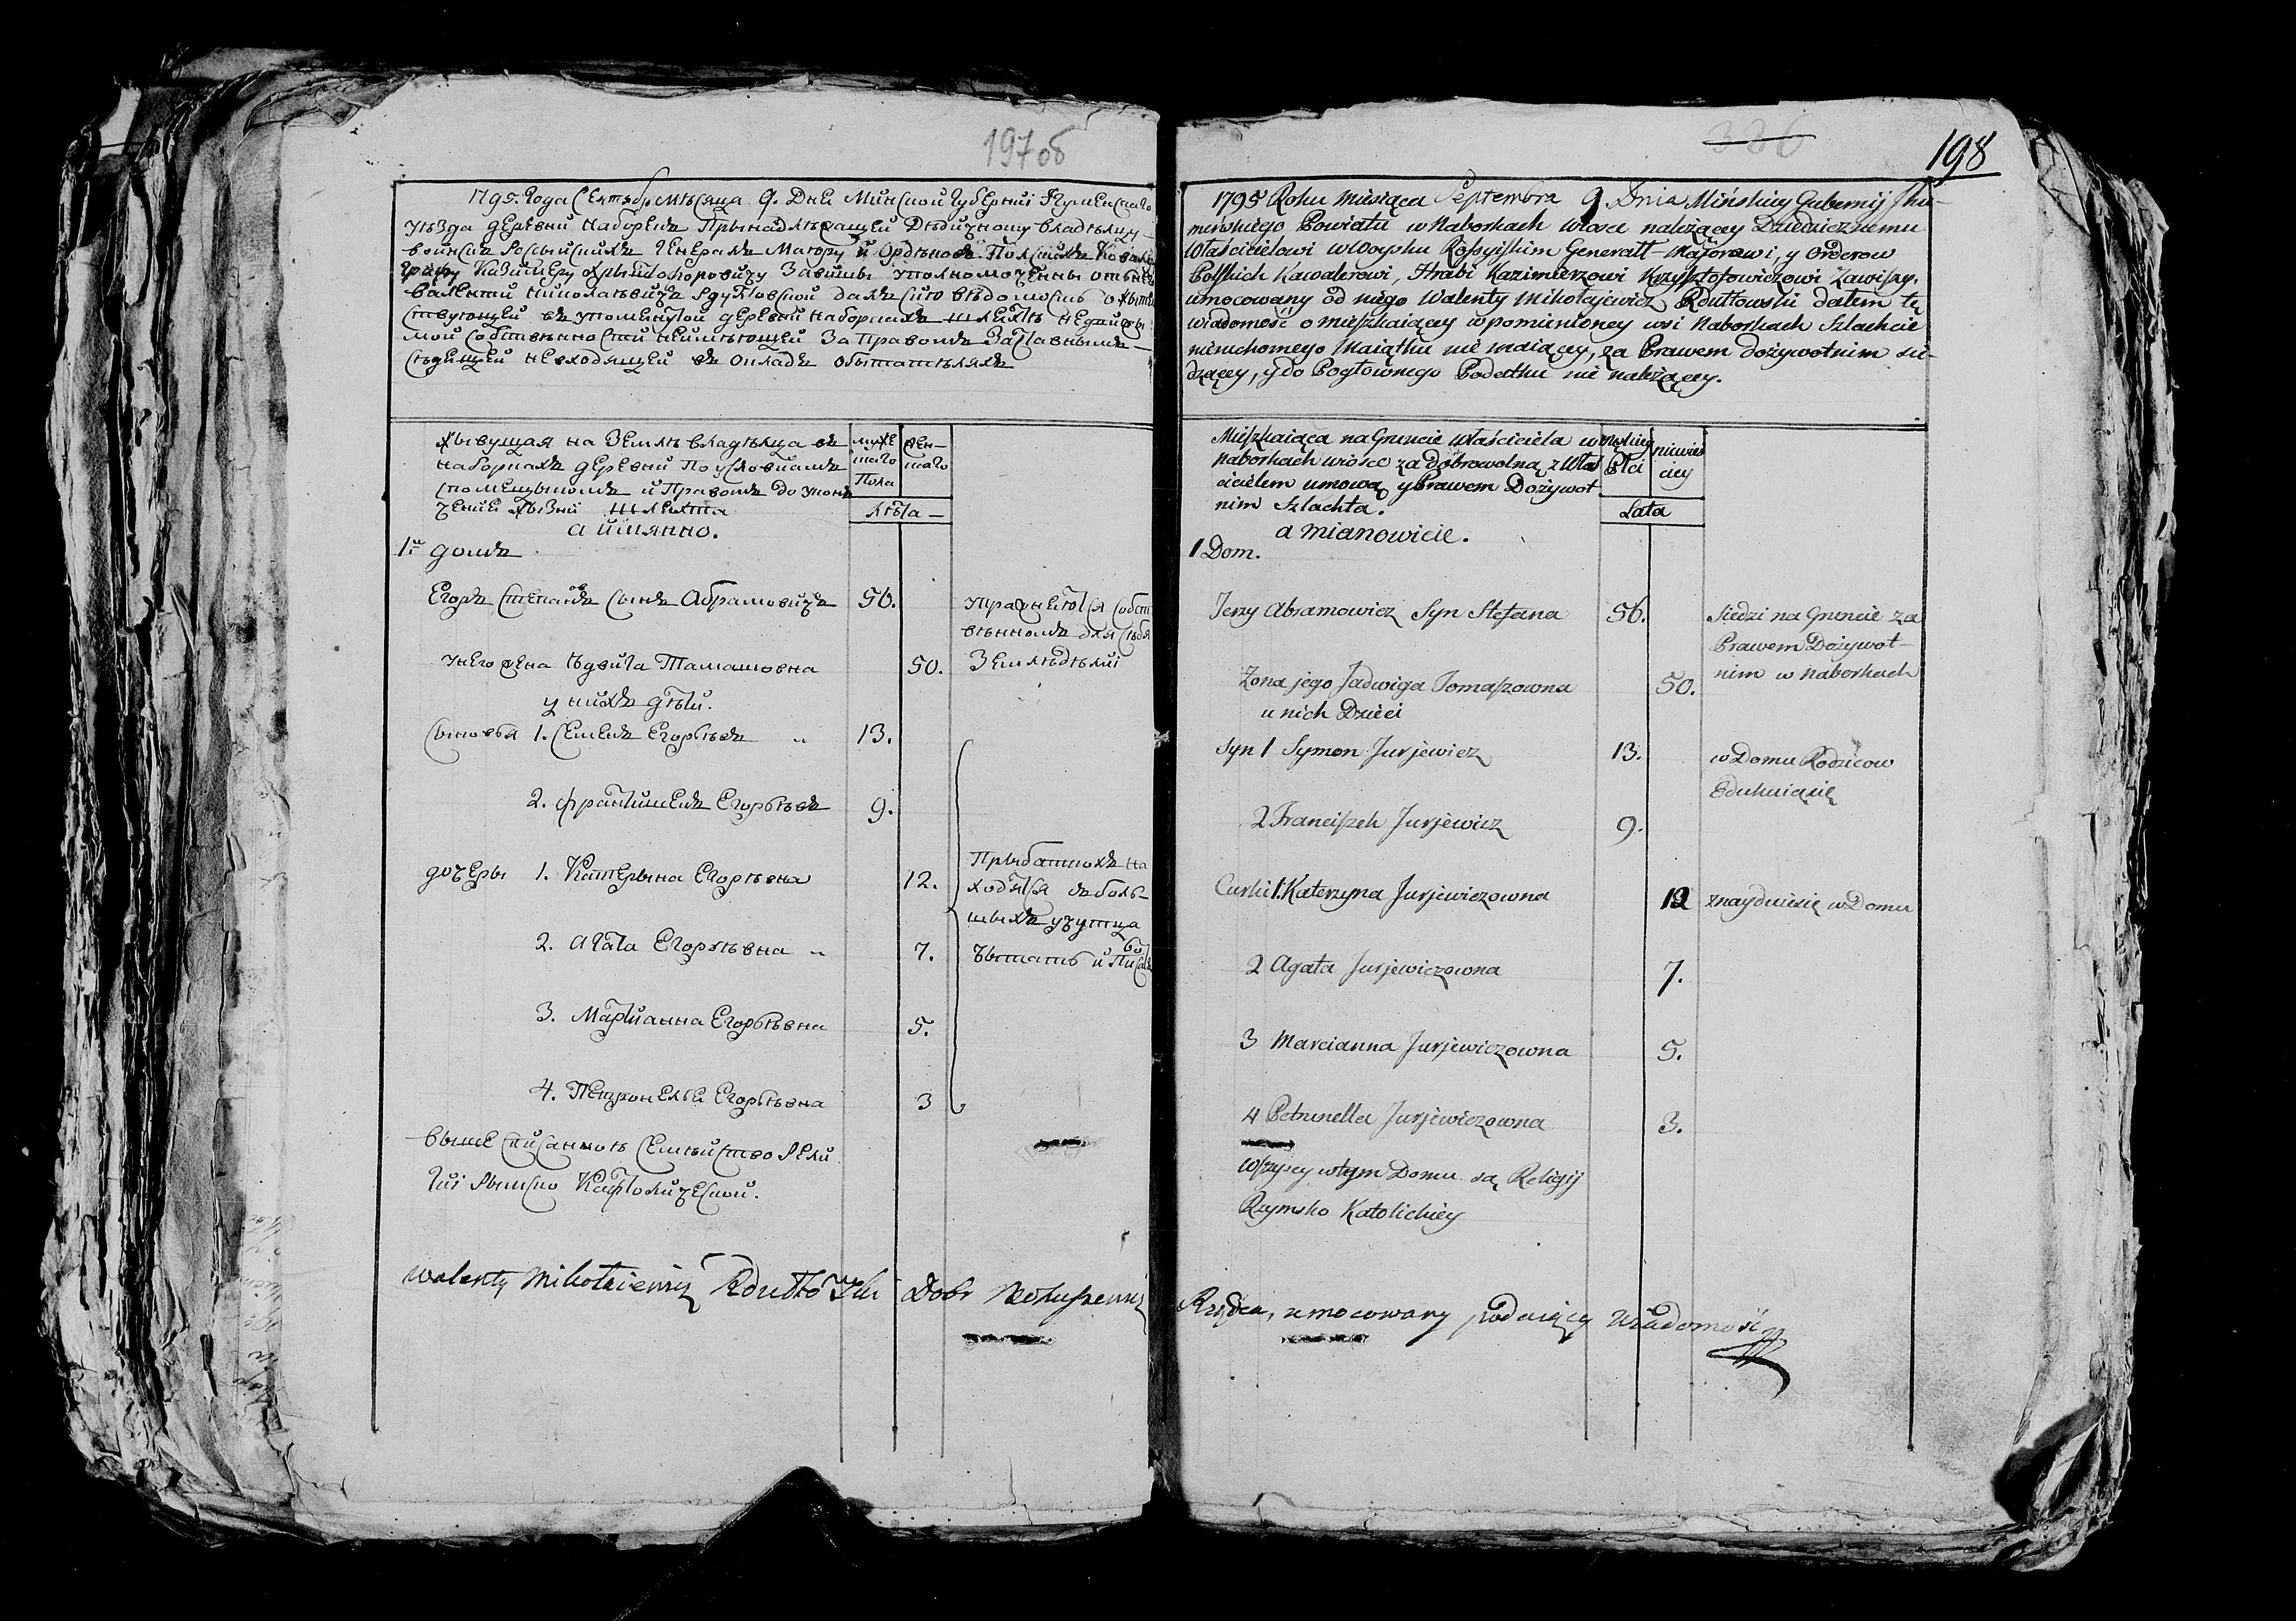 197об
1795. Года Сентябр мѣсяца 9. Дня Минской Губерніи Игуменскаго
уѣзда деревни Наборкѣ Принадлѣжащей Дѣдичному владѣлцу
войскъ Росыйскихъ Генералъ Маіору и Ордѣновъ Полскихъ
Графу Казимеру Хрыштофоровичу Завишы уполномоченны отъ
Валентій Николаевичъ Рдултовской далъ сию вѣдомость о
ствующей въ упоменутой деревни Наборкахъ шляхтѣ недвижы
мой собствѣнности неимѣющей За Правомъ Заставнымъ
сѣдящей невходящей въ окладъ
жывущая на Землѣ владѣлца въ
наборкахъ деревни По условиамъ
спомещыкомъ и Правомъ до
чения жызни шляхта
а имянно.
муже
скаго
Пола
жен-
скаго
лѣта
1й домъ
Егоръ Степановъ сынъ Абрамовичъ 56.
унего жена Ядвига Тамашовна 50.
у нихъ дѣти.
сыновья 1. Семенъ Егорьевъ 13.
2. Францишекъ Егорьевъ 9.
дочеры 1. Катерына Егорьевна 12.
2. Агата Егорьевна 7.
3. Марцианна Егорьевна 5.
4. Петронеля Егорьевна 3
землѣдѣлиі
ходятся въ боль-
шыхъ учутца
чытать и
выше списанноѣ семѣйство Рели
гиі Рымско Католической.
Walenty Mikołaiewicz Rdułtowski Dobr
336
198
1795 Roku Miesiąca Septembra 9 Dnia Mińskiey Gubernij Ihu-
mińskiego Powiatu w Naborkach Wiosce należącey Dziedzicznemu
Właścicielowi w Woysku Rossyiskim Generałł-Majorowi, y Orderow
Polskich Kawalerowi, Hrabi Kazimierzowi Krzysztofowiczowi Zawiszy.
umocowany od niego Walenty Mikołajewicz Rdułtowski dałem tę
wiadomość o mieszkaiącey w pomienioney wsi Naborkach Szlachcie
nieruchomego Maiątku nie maiącey, za Prawem dożywotnim sie-
dzącey, y do Pogłownego Podatku nie należącey.
Mieszkaiąca na Gruncie właściciela w
Naborkach wiosce za dobrowolną z Wła
ścicielem umową y Prawem Dożywot
nim Szlachta.
a mianowicie.
męskiey
Płci
niewieś
ciey
Lata
1 Dom.
Jerzy Abramowicz Syn Stefana 56. siedzi na Gruncie za
Prawem Dożywot-
nim w Naborkach
Zona jego Jadwiga Tomaszowna 50.
u nich Dzieci
Syn 1 Symon Jurjewicz 13. w Domu Rodzicow
Edukuią się
2 Franciszek Jurjewicz 9.
Curki 1. Katerzyna Jurjewiczowna 12 znayduie się w Domu
2 Agata Jurjewiczowna 7.
3 Marcianna Jurjewiczowna 5.
4 Petrunella Jurjewiczowna 3.
Wszyscy w tym Domu są Religij
Rzymsko Katolickiey
Rządca, umocowany podaiący Wiadomość